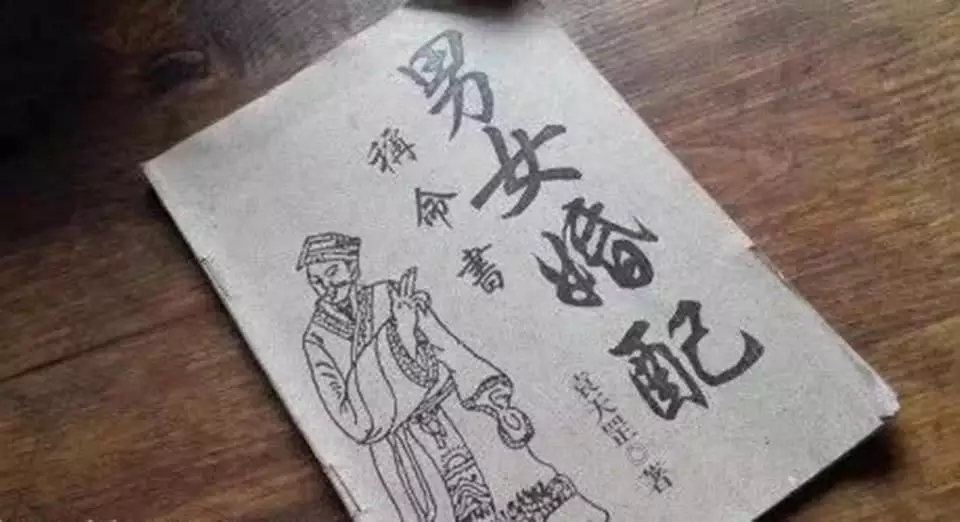 男女婚配
稱命書
袁天罡〇著